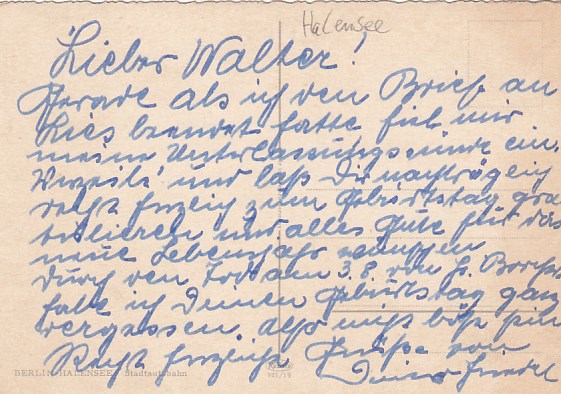 Halensee
Lieber Walter!
Gerade als ich den Brief an
Lies beendet hatte fiel mir
meine Unterlassungssünde ein.
Verzeih' und laß Dir nachträglich
recht herzlich zum Geburtstag gra-
tulieren und alles Gute für das
neue Lebensjahr wünschen
durch den Tod am 3.8. von H.
habe ich Deinen Geburtstag ganz
vergessen. also nicht böse sein
Recht herzliche Grüße von
BERLIN-HALENSEE Stadtautobahn